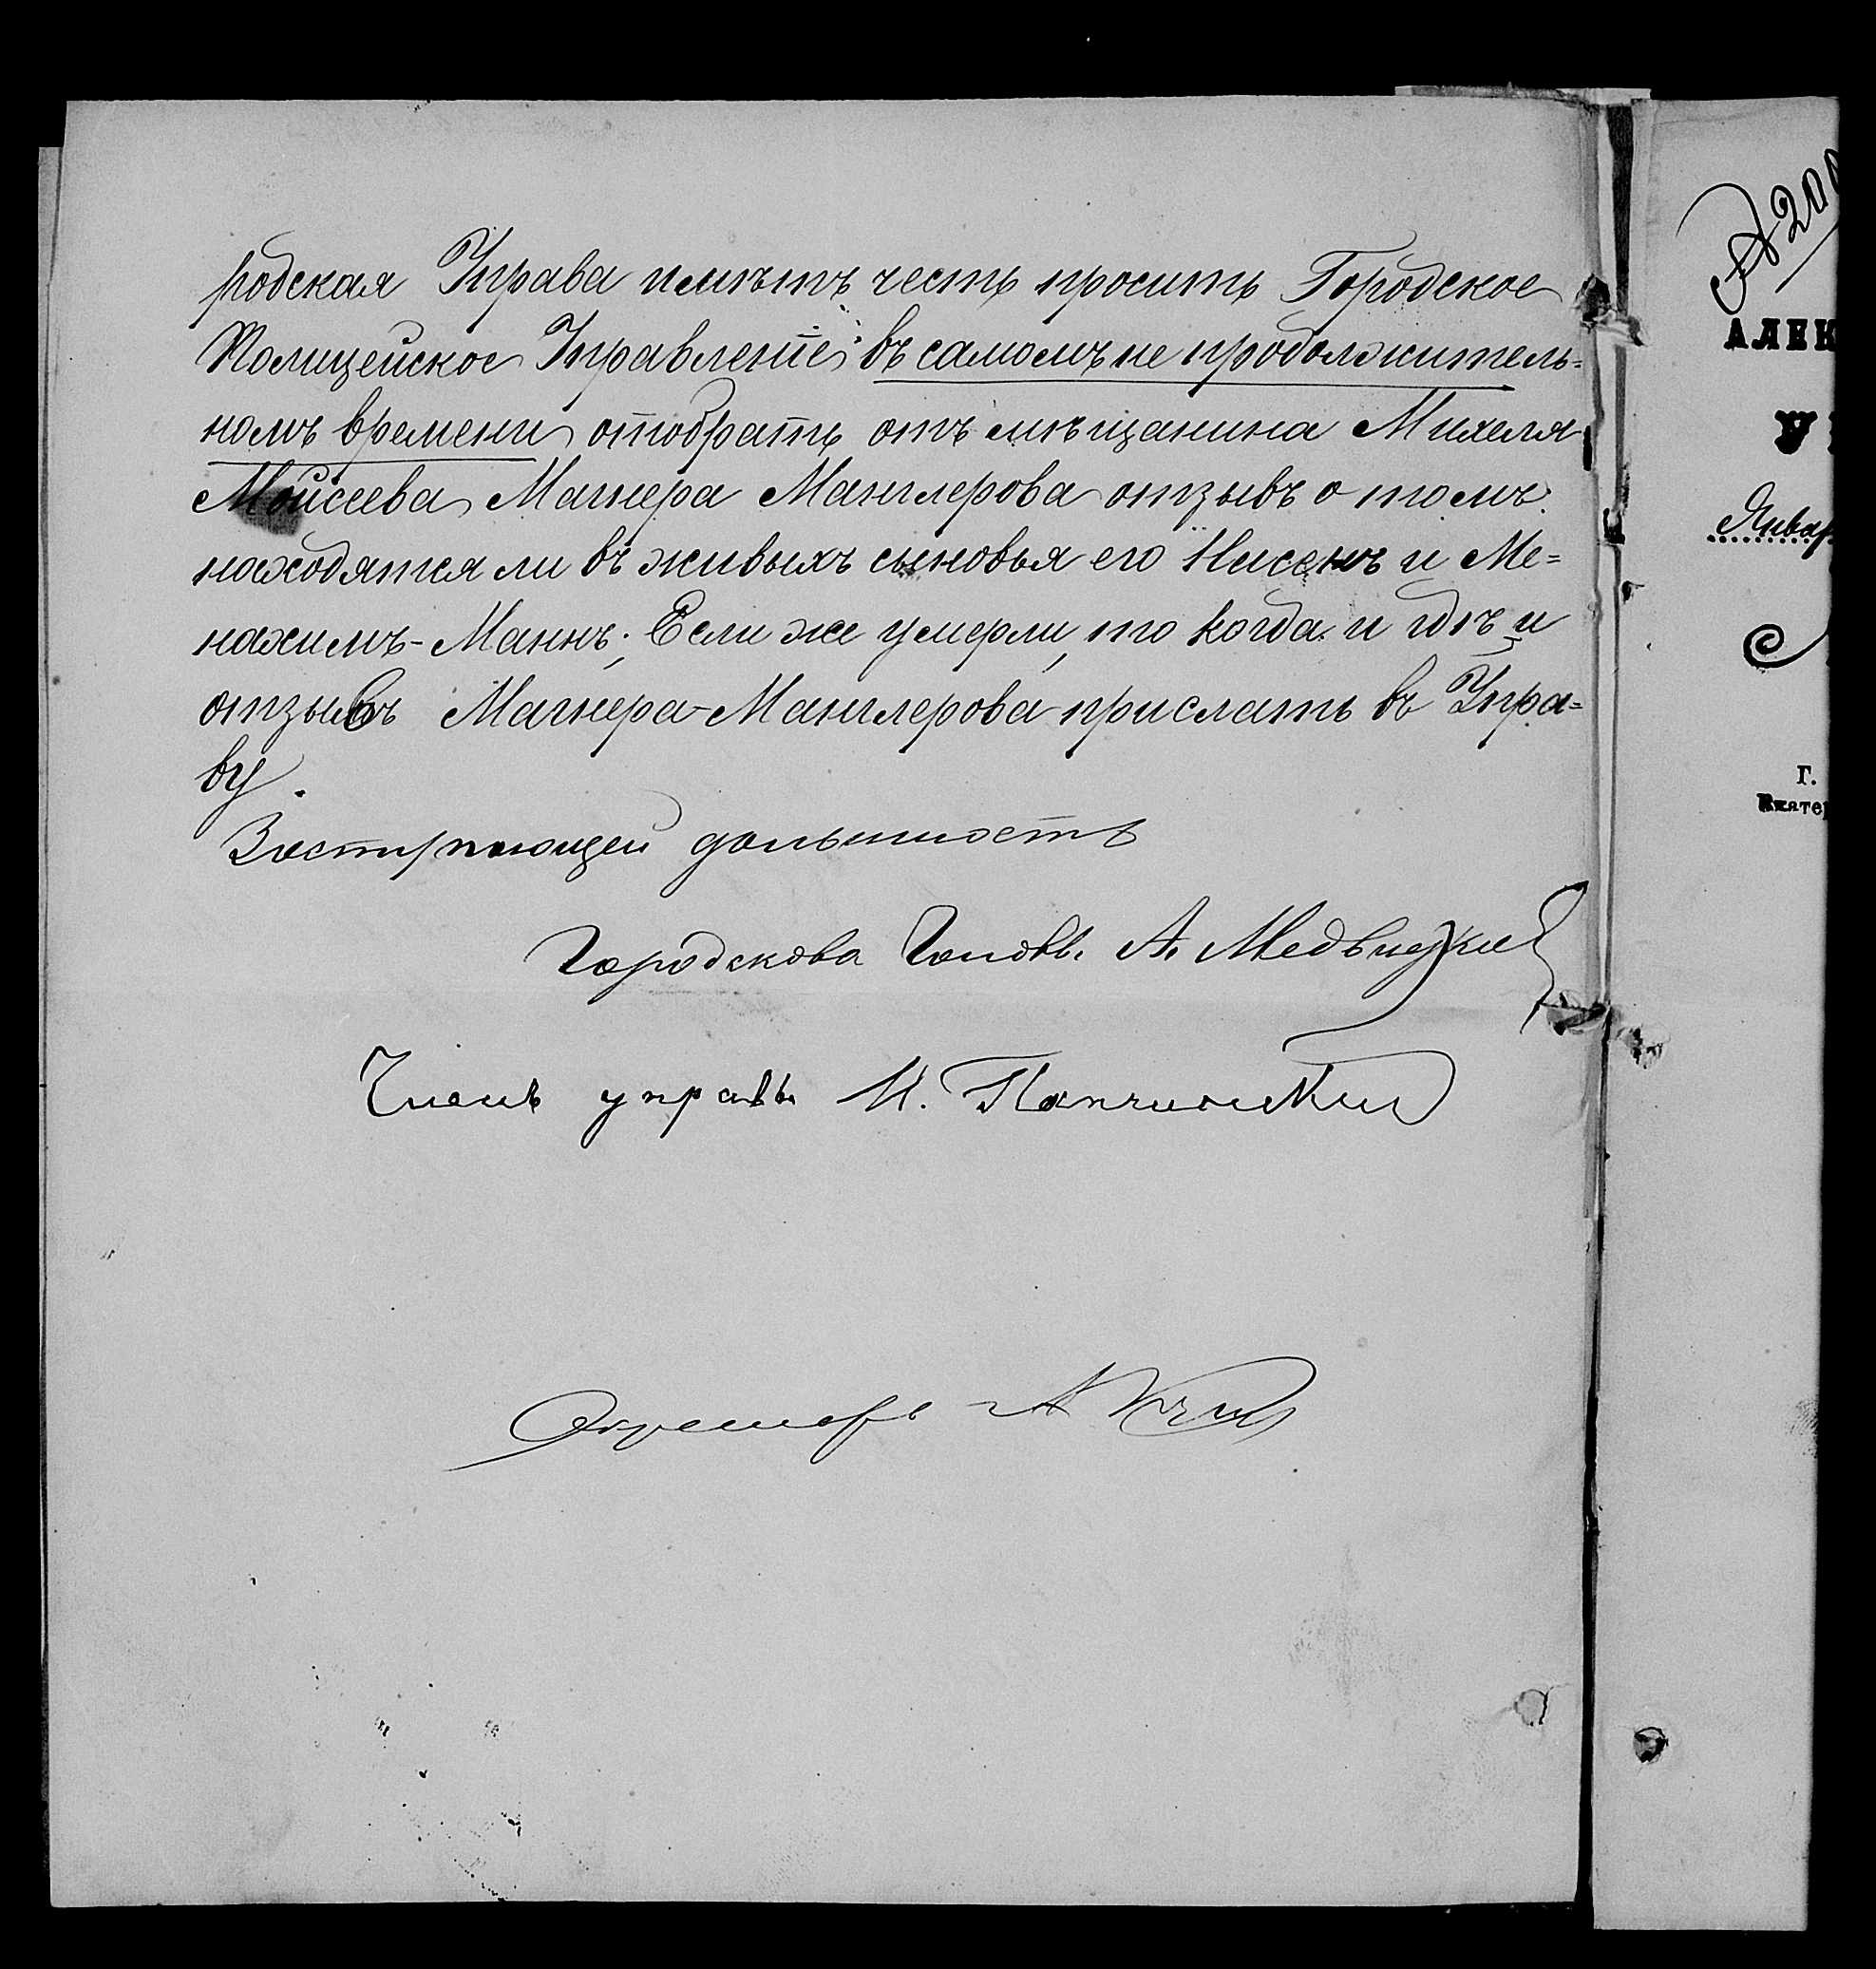 родская Управа имѣетъ честь просить Городское
Полицейское Управленіе въ самомъ не продолжитель=
номъ времени отобрать отъ мѣщанина Михеля
Моисеева Магнера Манглерова отзывъ о томъ
находятся ли въ живыхъ сыновья его Нисенъ и Ме=
нахимъ-Маннъ; Если же умерли, то когда и гдѣ и
отзывъ Магнера-Манглерова прислать въ Упра=
ву.
должность
Городскова Голов. А.
Членъ управы
Секретарь
А200
АЛЕК
У
Январ
Г.
Екатер